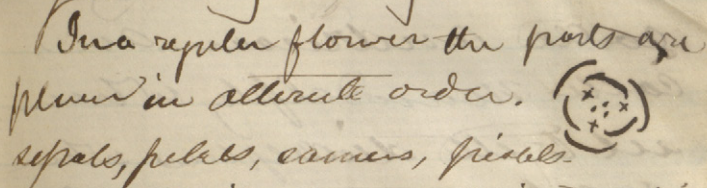 In a regular flower the parts are
placed in alternate order.
sepals, petals, stamens, pistils.